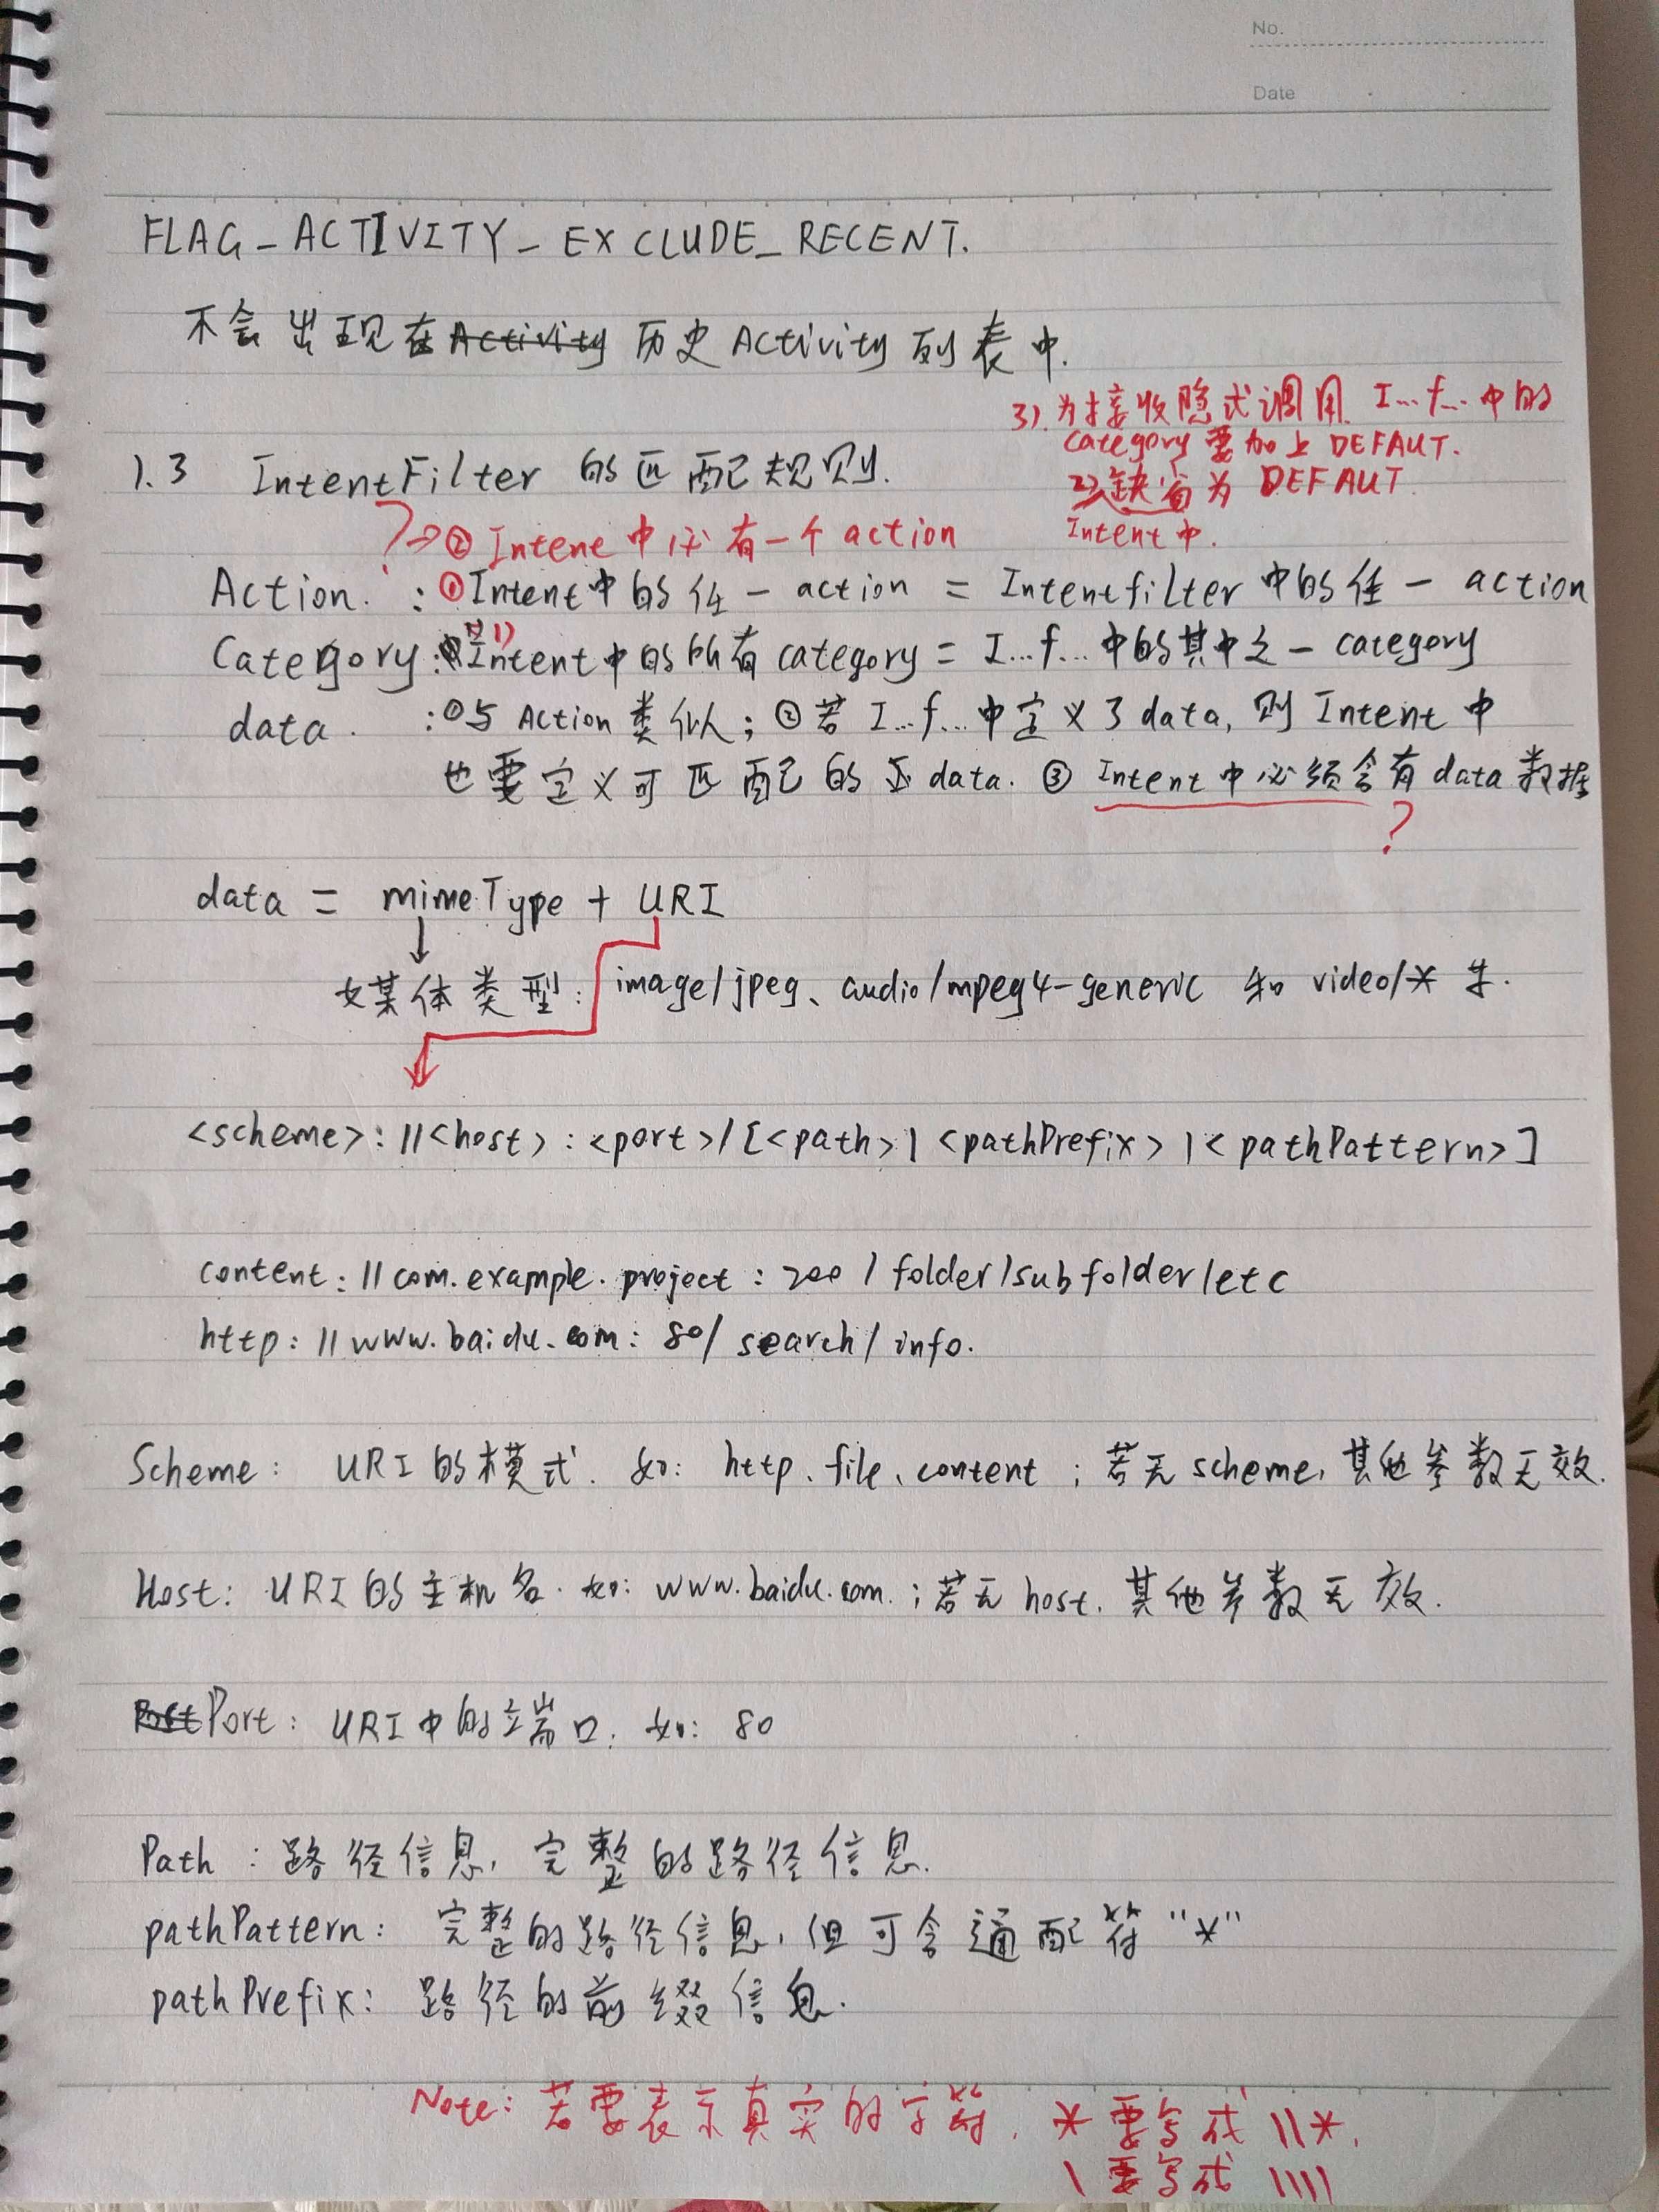 No.
Date
FLAG_ACTIVITY_EXCLUDE_RECENT.
不会出现在Activity历史Activity列表中.
3).为接收隐式调用.I...f...中的
category要加上DEFAUT.
1.3 IntentFilter的匹配规则.
2)缺省为DEFAUT.
Intent中.
?→② Intene中必有一个action
Action.:①Intent中的任一action = Intentfilter中的任一action
Category:1)Intent中的所有category = I...f...中的其中之一category
data.:①与Action类似;②若I...f...中定义了data,则Intent中
也要定义可匹配的data.③Intent中必须含有data数据
?
data = mimeType + URI
↓
媒体类型: image/jpeg、audio/mpeg4-generic 和 video/* 等.
<scheme>://<host>:<port>/[<path>|<pathPrefix>|<pathPattern>]
content://com.example.project:200/folder/subfolder/etc
http://www.baidu.com:80/search/info.
Scheme: URI的模式.如: http、file、content;若无scheme,其他参数无效.
Host: URI的主机名.如: www.baidu.com.;若无host.其他参数无效.
Port: URI中的端口.如: 80
Path:路径信息,完整的路径信息.
pathPattern: 完整的路径信息,但可含通配符"*"
pathPrefix: 路径的前缀信息.
Note:若要表示真实的字符,*要写成\\*,
\要写成\\\\